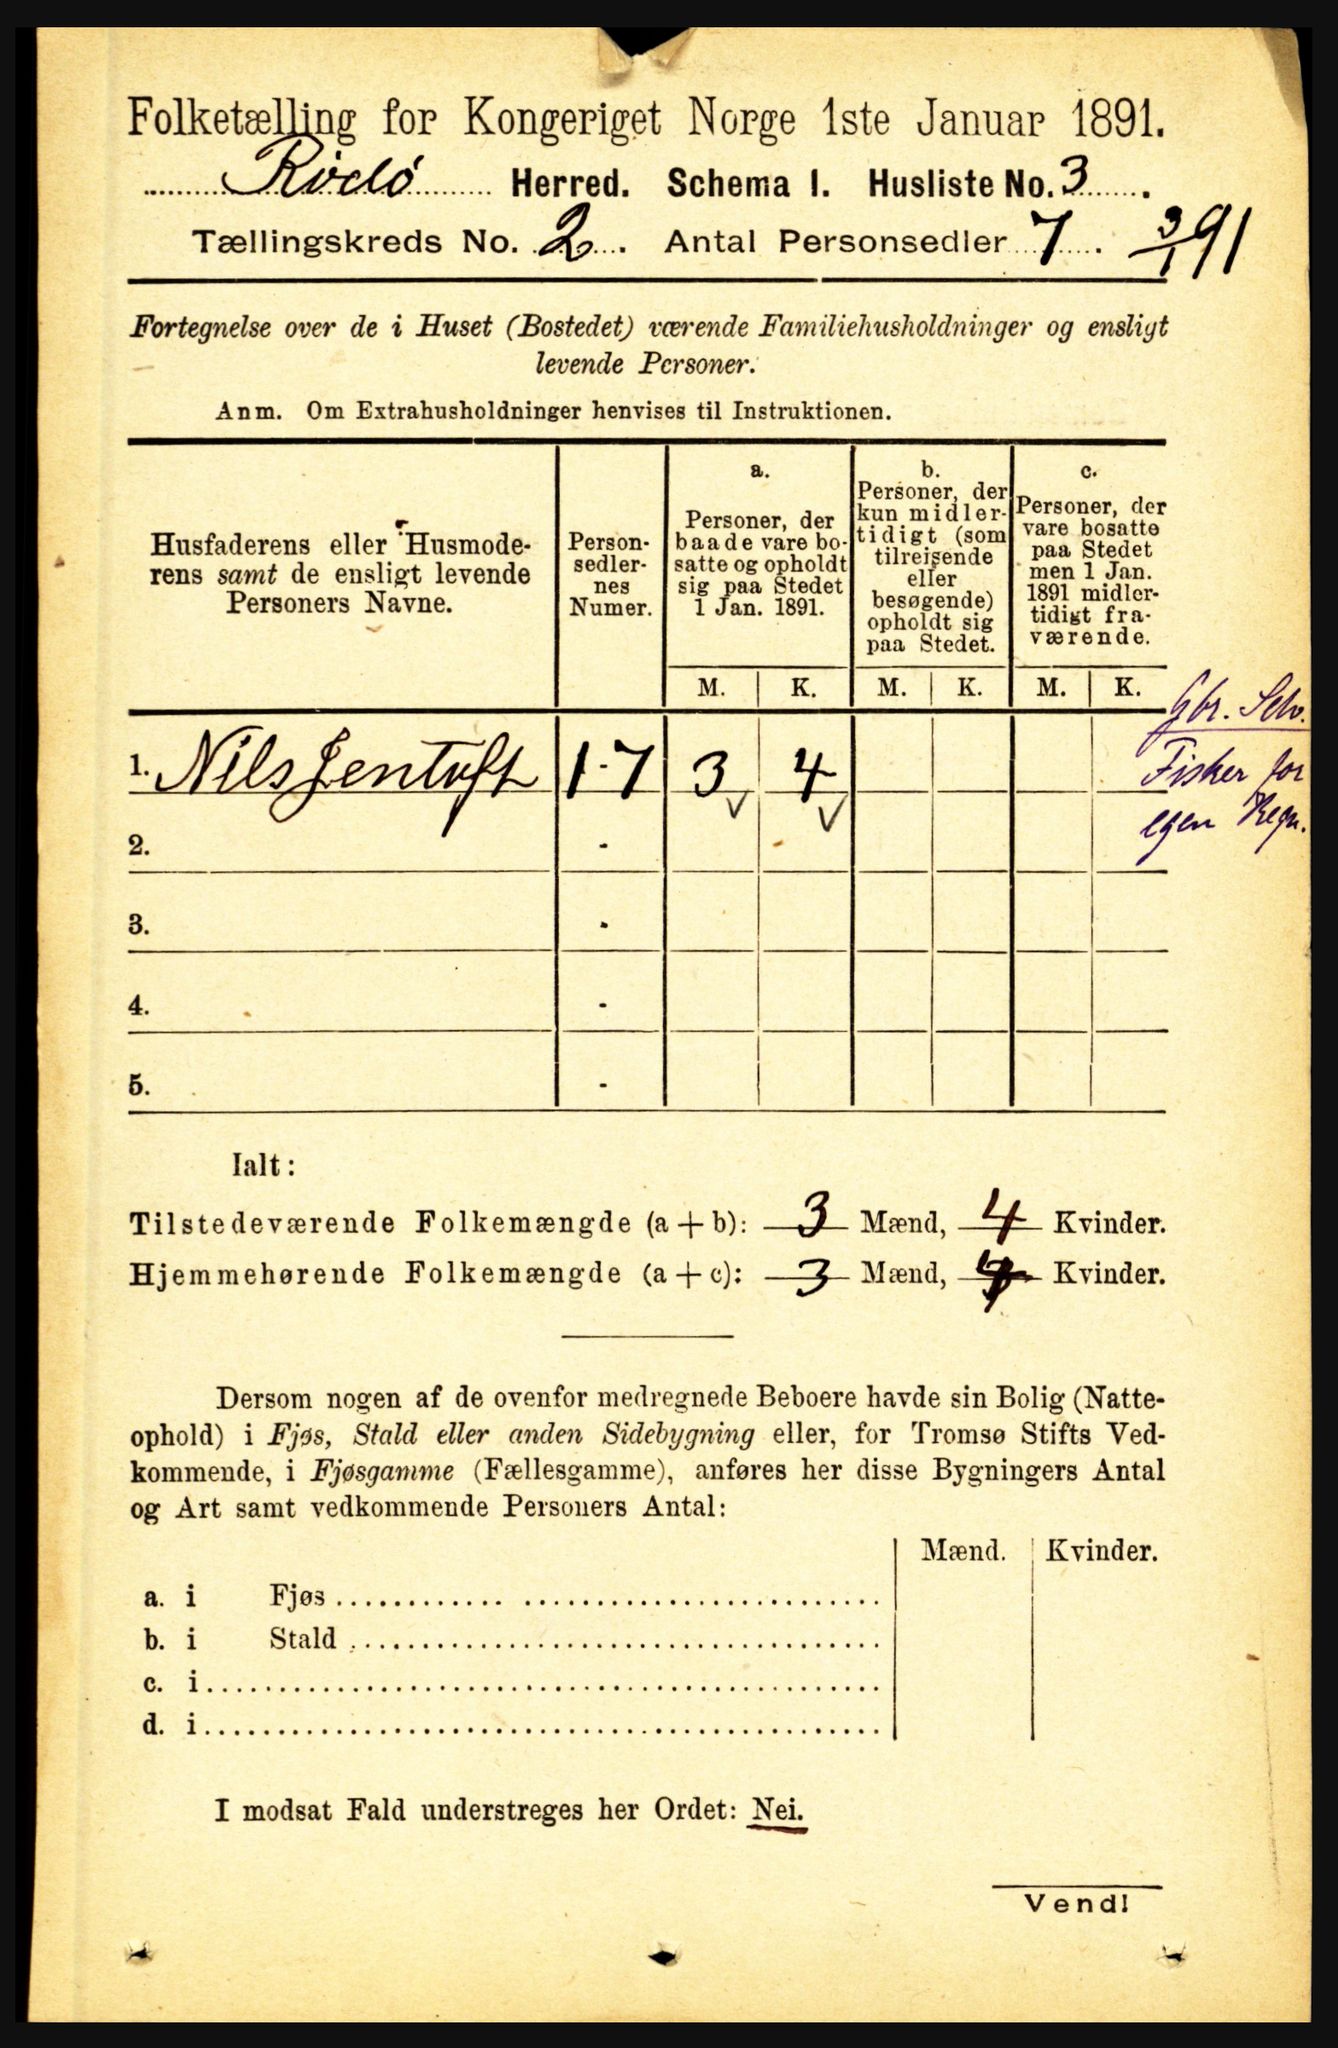 Folketælling for Kongeriget Norge 1ste Januar 1891.
Rødø Herred. Schema I. Husliste No. 3.
Tællingskreds No. 2. Antal Personsedler 7. 3/1 91
Fortegnelse over de i Huset (Bostedet) værende Familiehusholdninger og ensligt
levende Personer.
Anm. Om Extrahusholdninger henvises til Instruktionen.
Husfaderens eller Husmode-
rens samt de ensligt levende
Personers Navne.
Person-
sedler-
nes
Numer.
a.
Personer, der
baade vare bo-
satte og opholdt
sig paa Stedet
1 Jan. 1891.
b.
Personer, der
kun midler-
tidigt (som
tilreisende
eller
besøgende)
opholdt sig
paa Stedet.
c.
Personer, der
vare bosatte
paa Stedet
men 1 Jan.
1891 midler-
tidigt fra-
værende.
M. K. M. K. M. K.
Gbr. Selv.
Fisker for
egen Regn.
1. Nils Jentoft 1-7 3 4
2. -
3. -
4. -
5. -
Ialt:
Tilstedeværende Folkemængde (a + b): 3 Mænd, 4 Kvinder.
Hjemmehørende Folkemængde (a + c): 3 Mænd, 4 Kvinder.
Dersom nogen af de ovenfor medregnede Beboere havde sin Bolig (Natte-
ophold) i Fjøs, Stald eller anden Sidebygning eller, for Tromsø Stifts Ved-
kommende, i Fjøsgamme (Fællesgamme), anføres her disse Bygningers Antal
og Art samt vedkommende Personers Antal:
Mænd. Kvinder.
a. i Fjøs
b. i Stald
c. i
d. i
I modsat Fald understreges her Ordet: Nei.
Vend!